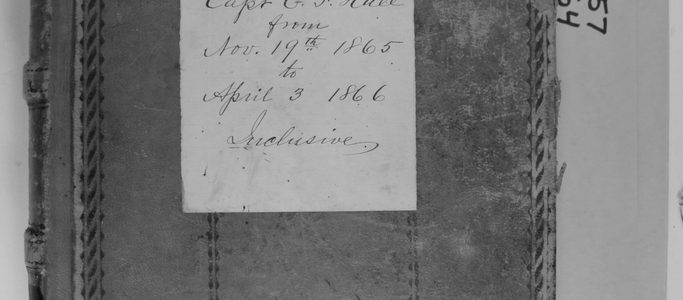 Capt
from
Nov. 19th 1865
to
April 3 1866
Inclusive.
57
64